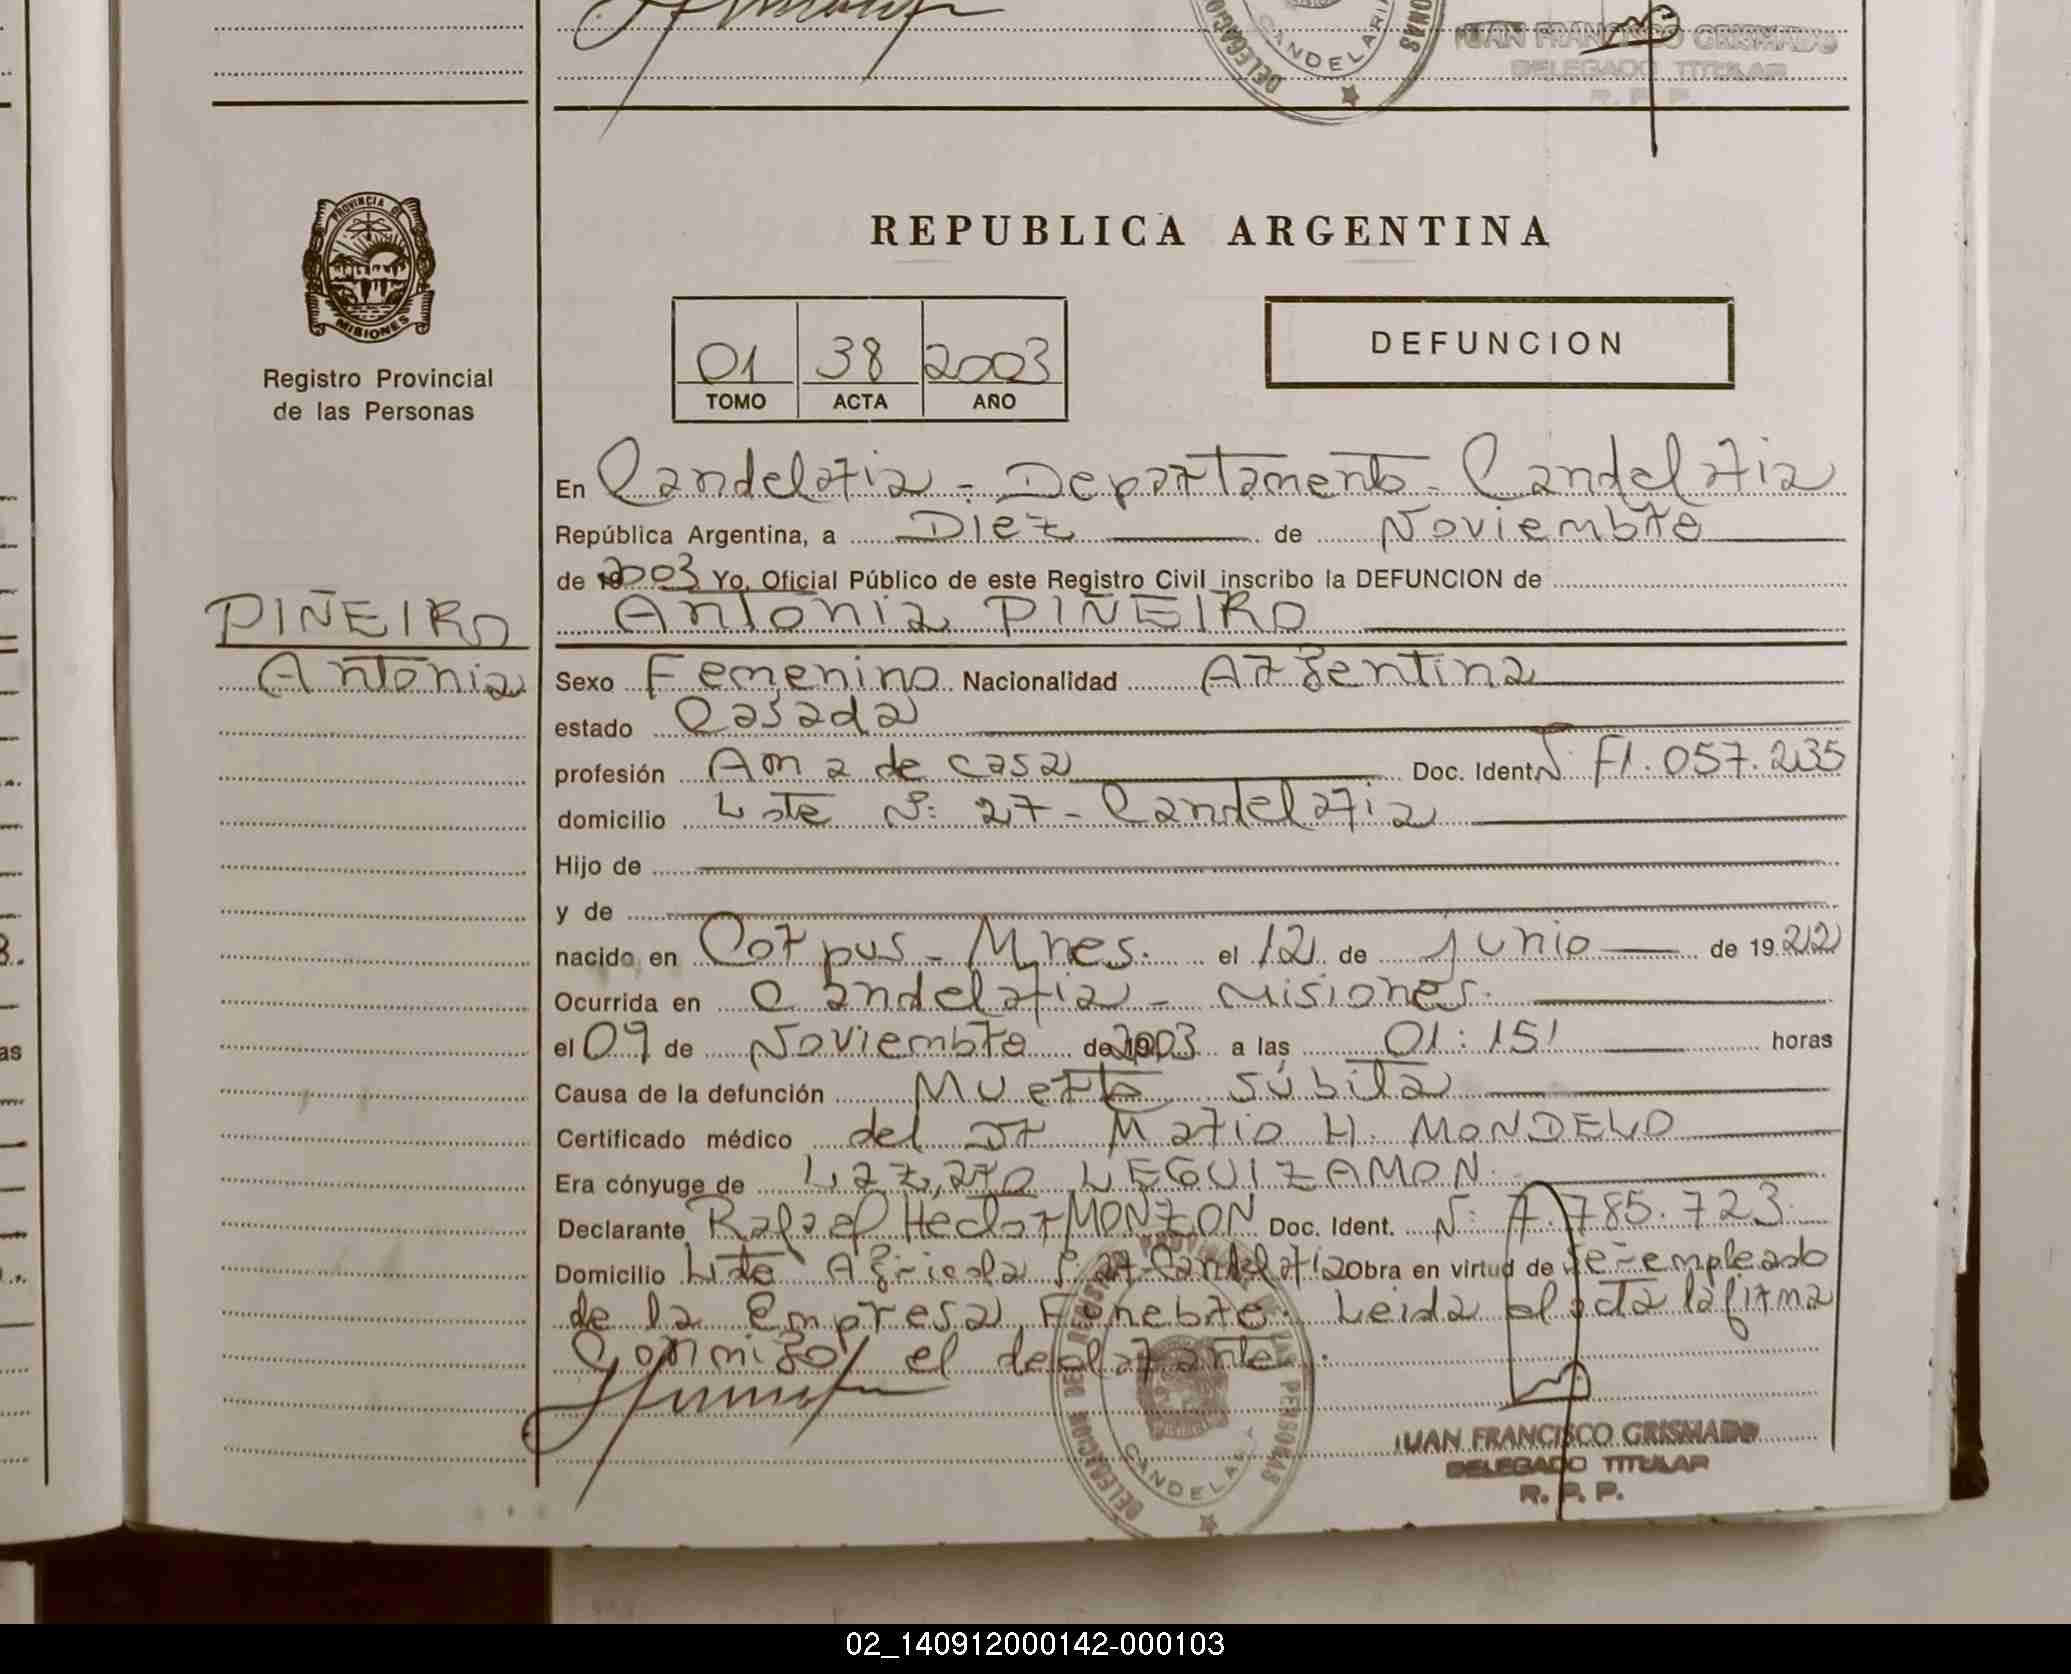 DELEGACIO
CANDELARI
ONAS
JUAN FRANCISCO GRISMADO
DELEGADO TITULAR
R. P. P.
PROVINCIA DE
MISIONES
Registro Provincial
de las Personas
REPUBLICA ARGENTINA
01 38 2003
TOMO ACTA AÑO
DEFUNCION
En Candelaria - Departamento - Candelaria
República Argentina, a Diez de Noviembre
de 2003 Yo, Oficial Público de este Registro Civil inscribo la DEFUNCION de
PIÑEIRO
Antonia PIÑEIRO
Antonia
Sexo Femenino Nacionalidad Argentina
estado Casada
profesión Ama de casa Doc. Ident. Nº F1.057.235
domicilio Lote Nº: 27 - Candelaria
Hijo de
y de
nacido en Corpus - Mnes. el 12 de junio de 1922
Ocurrida en Candelaria - Misiones.
el 09 de Noviembre de 2003 a las 01:15' horas
Causa de la defunción Muerte súbita
Certificado médico del Dr Mario H. MONDELO
Era cónyuge de Lázaro LEGUIZAMON.
Declarante Rafael Hector MONZON Doc. Ident. Nº: 7.785.723.
Domicilio Lote Agricola 27-Candelaria Obra en virtud de ser empleado
de la Empresa Funebre. Leida el acta la firma
conmigo el declarante.
CANDELARIA
JUAN FRANCISCO GRISMADO
DELEGADO TITULAR
R. P. P.
02_140912000142-000103